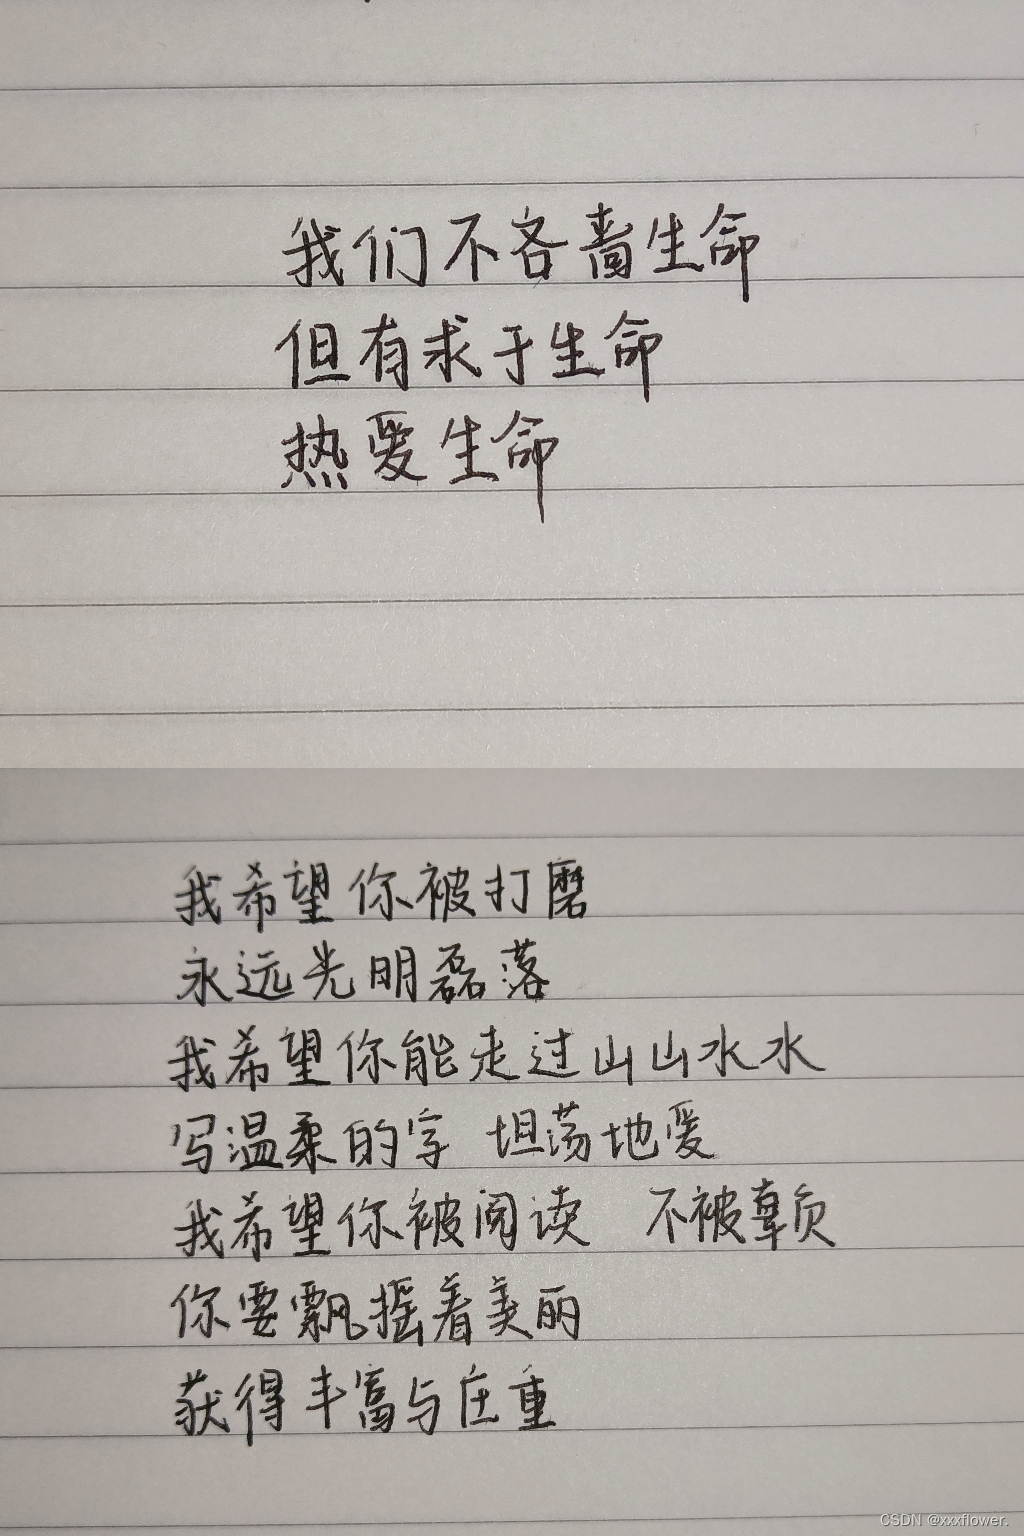 我们不吝啬生命
但有求于生命
热爱生命
我希望你被打磨
永远光明磊落
我希望你能走过山山水水
写温柔的字 坦荡地爱
我希望你被阅读 不被辜负
你要飘摇着美丽
获得丰富与庄重
CSDN @xxxflower.